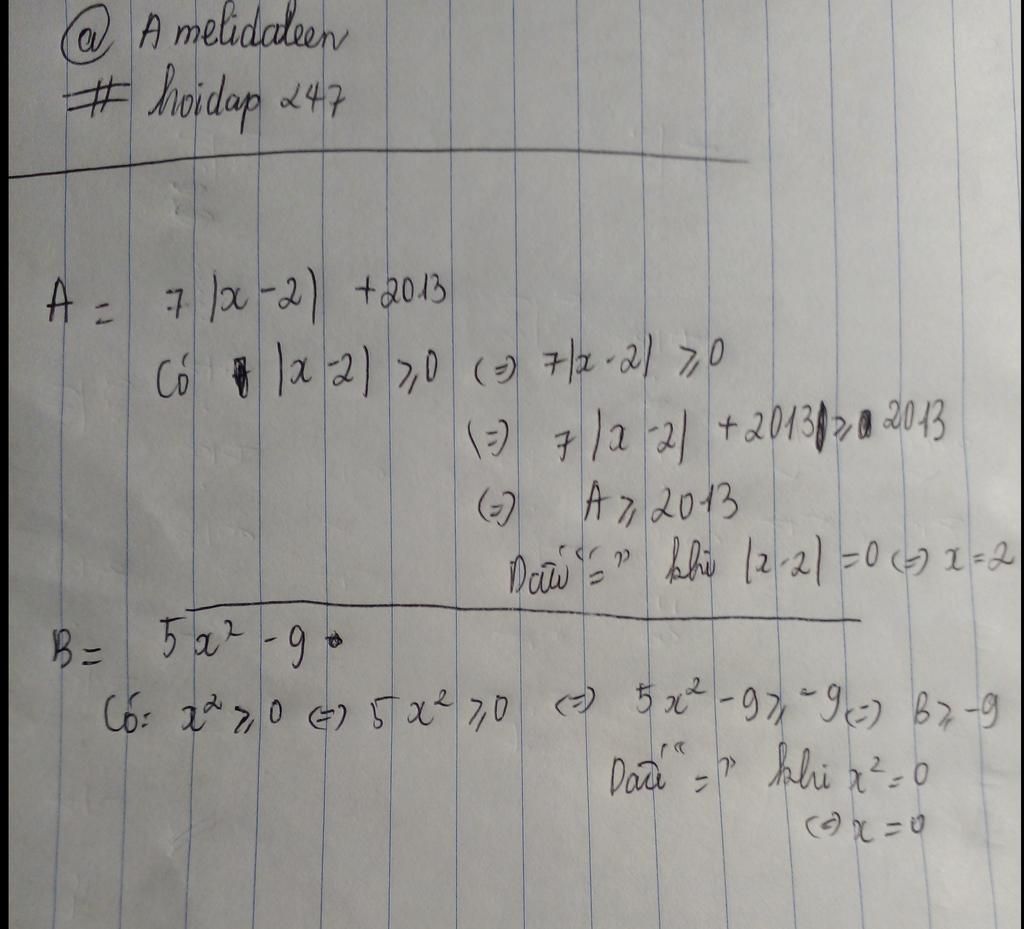 @ Amelidaleen
# hoidap 247
A = 7 |x - 2| + 2013
Có |x - 2| ≥ 0 (=) 7|x - 2| ≥ 0
(=) 7 |x - 2| + 2013 ≥ 2013
(=) A ≥ 2013
Dấu "=" khi |x - 2| = 0 (=) x = 2
B = 5x² - 9
Có: x² ≥ 0 (=) 5x² ≥ 0 (=) 5x² - 9 ≥ -9 (=) B ≥ -9
Dấu "=" khi x² = 0
(=) x = 0